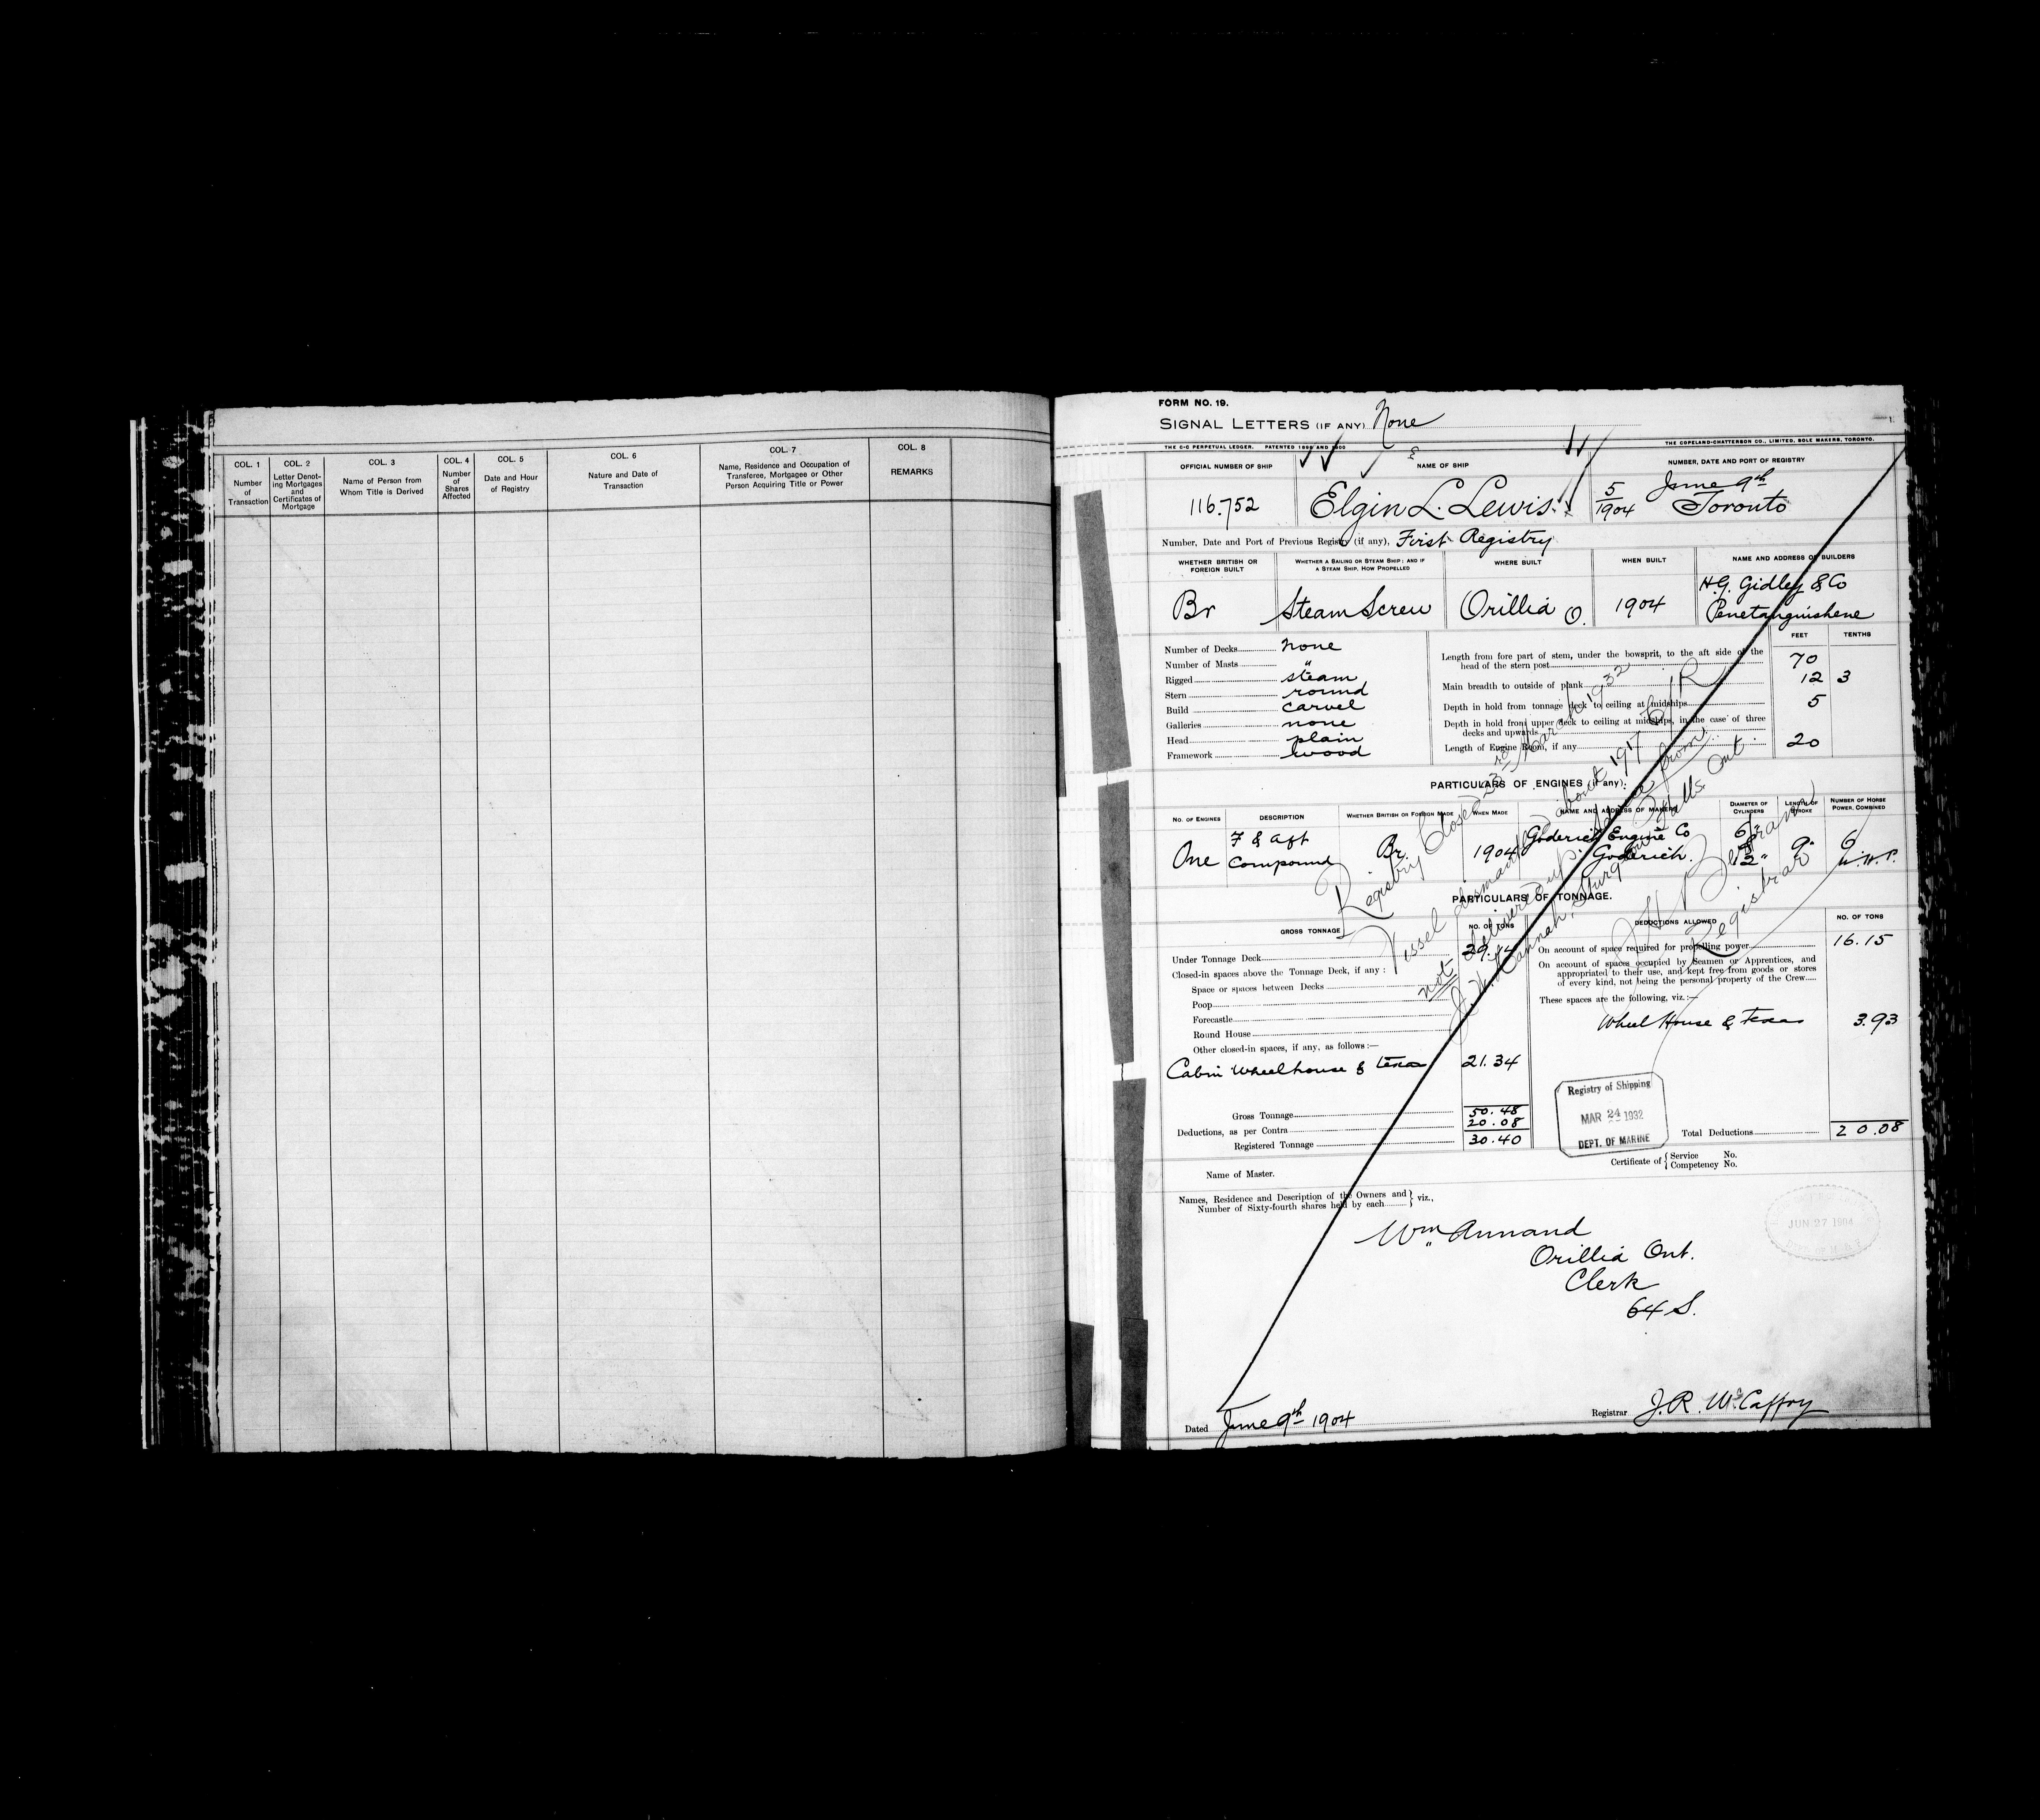 COL. 1
Number
of
Transaction
COL. 2
Letter Denot-
ing Mortgages
and
Certificates of
Mortgage
COL. 3
Name of Person from
Whom Title is Derived
COL. 4
Number
of
Shares
Affected
COL. 5
Date and Hour
of Registry
COL. 6
Nature and Date of
Transaction
COL. 7
Name, Residence and Occupation of
Transferee, Mortgagee or Other
Person Acquiring Title or Power
COL. 8
REMARKS
FORM NO. 19.
SIGNAL LETTERS (IF ANY) None
THE C-C PERPETUAL LEDGER. PATENTED 1896 AND 1900
THE COPELAND-CHATTERSON CO., LIMITED, SOLE MAKERS, TORONTO.
OFFICIAL NUMBER OF SHIP
NAME OF SHIP
NUMBER, DATE AND PORT OF REGISTRY
116.752
Elgin L. Lewis.
5/1904
June 9th
Toronto
Number, Date and Port of Previous Registry (if any), First Registry
WHETHER BRITISH OR
FOREIGN BUILT
WHETHER A SAILING OR STEAM SHIP; AND IF
A STEAM SHIP, HOW PROPELLED
WHERE BUILT
WHEN BUILT
NAME AND ADDRESS OF BUILDERS
Br
Steam Screw
Orillia O.
1904
H.G. Gidley & Co
Penetanguishene
FEET
TENTHS
Number of Decks none
Number of Masts "
Rigged steam
Stern round
Build carvel
Galleries none
Head plain
Framework wood
Length from fore part of stem, under the bowsprit, to the aft side of the
head of the stern post 70
Main breadth to outside of plank 12 3
Depth in hold from tonnage deck to ceiling at midships 5
Depth in hold from upper deck to ceiling at midships, in the case of three
decks and upwards
Length of Engine Room, if any 20
PARTICULARS OF ENGINES (if any).
NO. OF ENGINES
DESCRIPTION
WHETHER BRITISH OR FOREIGN MADE
WHEN MADE
NAME AND ADDRESS OF MAKERS
DIAMETER OF
CYLINDERS
LENGTH OF
STROKE
NUMBER OF HORSE
POWER, COMBINED
One
F & aft
Compound
Br.
1904
Goderich Engine Co
Goderich.
6"
12"
9"
6
N.H.P.
PARTICULARS OF TONNAGE.
GROSS TONNAGE
NO. OF TONS
DEDUCTIONS ALLOWED
NO. OF TONS
Under Tonnage Deck 29.14
Closed-in spaces above the Tonnage Deck, if any:
Space or spaces between Decks
Poop
Forecastle
Round House
Other closed-in spaces, if any, as follows:—
Cabin Wheelhouse & texas 21.34
Gross Tonnage 50.48
Deductions, as per Contra 20.08
Registered Tonnage 30.40
On account of space required for propelling power 16.15
On account of spaces occupied by Seamen or Apprentices, and
appropriated to their use, and kept free from goods or stores
of every kind, not being the personal property of the Crew
These spaces are the following, viz.:—
Wheel House & texas 3.93
Total Deductions 20.08
Registry Closed 23rd March 1932
Vessel dormant about 1917 C/R
not delivered up. Advice from
Hannah, Sturgeon Falls Ont.
Registrar
Registry of Shipping
MAR 24 1932
DEPT. OF MARINE
Name of Master.
Certificate of { Service No.
Competency No.
Names, Residence and Description of the Owners and } viz.,
Number of Sixty-fourth shares held by each
JUN 27 1904
Wm Annand
Orillia Ont.
Clerk
64 S.
Dated June 9th 1904
Registrar J.R. McCaffry